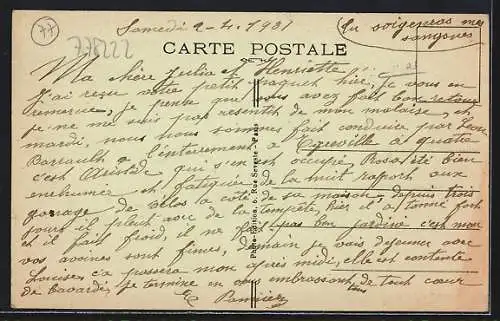 77
Samedi 2-4. 1931
Tu soigneras mes
sansones
778222
CARTE POSTALE
Ma chère Julia et Henriette
J'ai reçu votre petit paquet hier, je vous en
remercie, je pense que vous avez fait bon retour
je ne me suis pas ressentit de mon molaire, et
mardi, nous nous sommes fait conduire par Leon
à l'enterrement à à quatre
c'est Aristide qui s'en est occupé, Rosa était bien
enrhumée et fatiguée de la nuit rapport aux
garage de vélos a coté de sa maison - depuis trois
jours il pleut avec de la tempête, hier il a tonné fort
et il fait froid, il ne fait pas bon jardiné c'est mon
vos avoines sont finies, demain je vais dejeuner avec
Louise, c'a passera mon après midi, elle est contente
de bavarder, je termine en vous embrassant de tout cœur
tous
Patis-Edition, 6, Rue Seveste - Paris